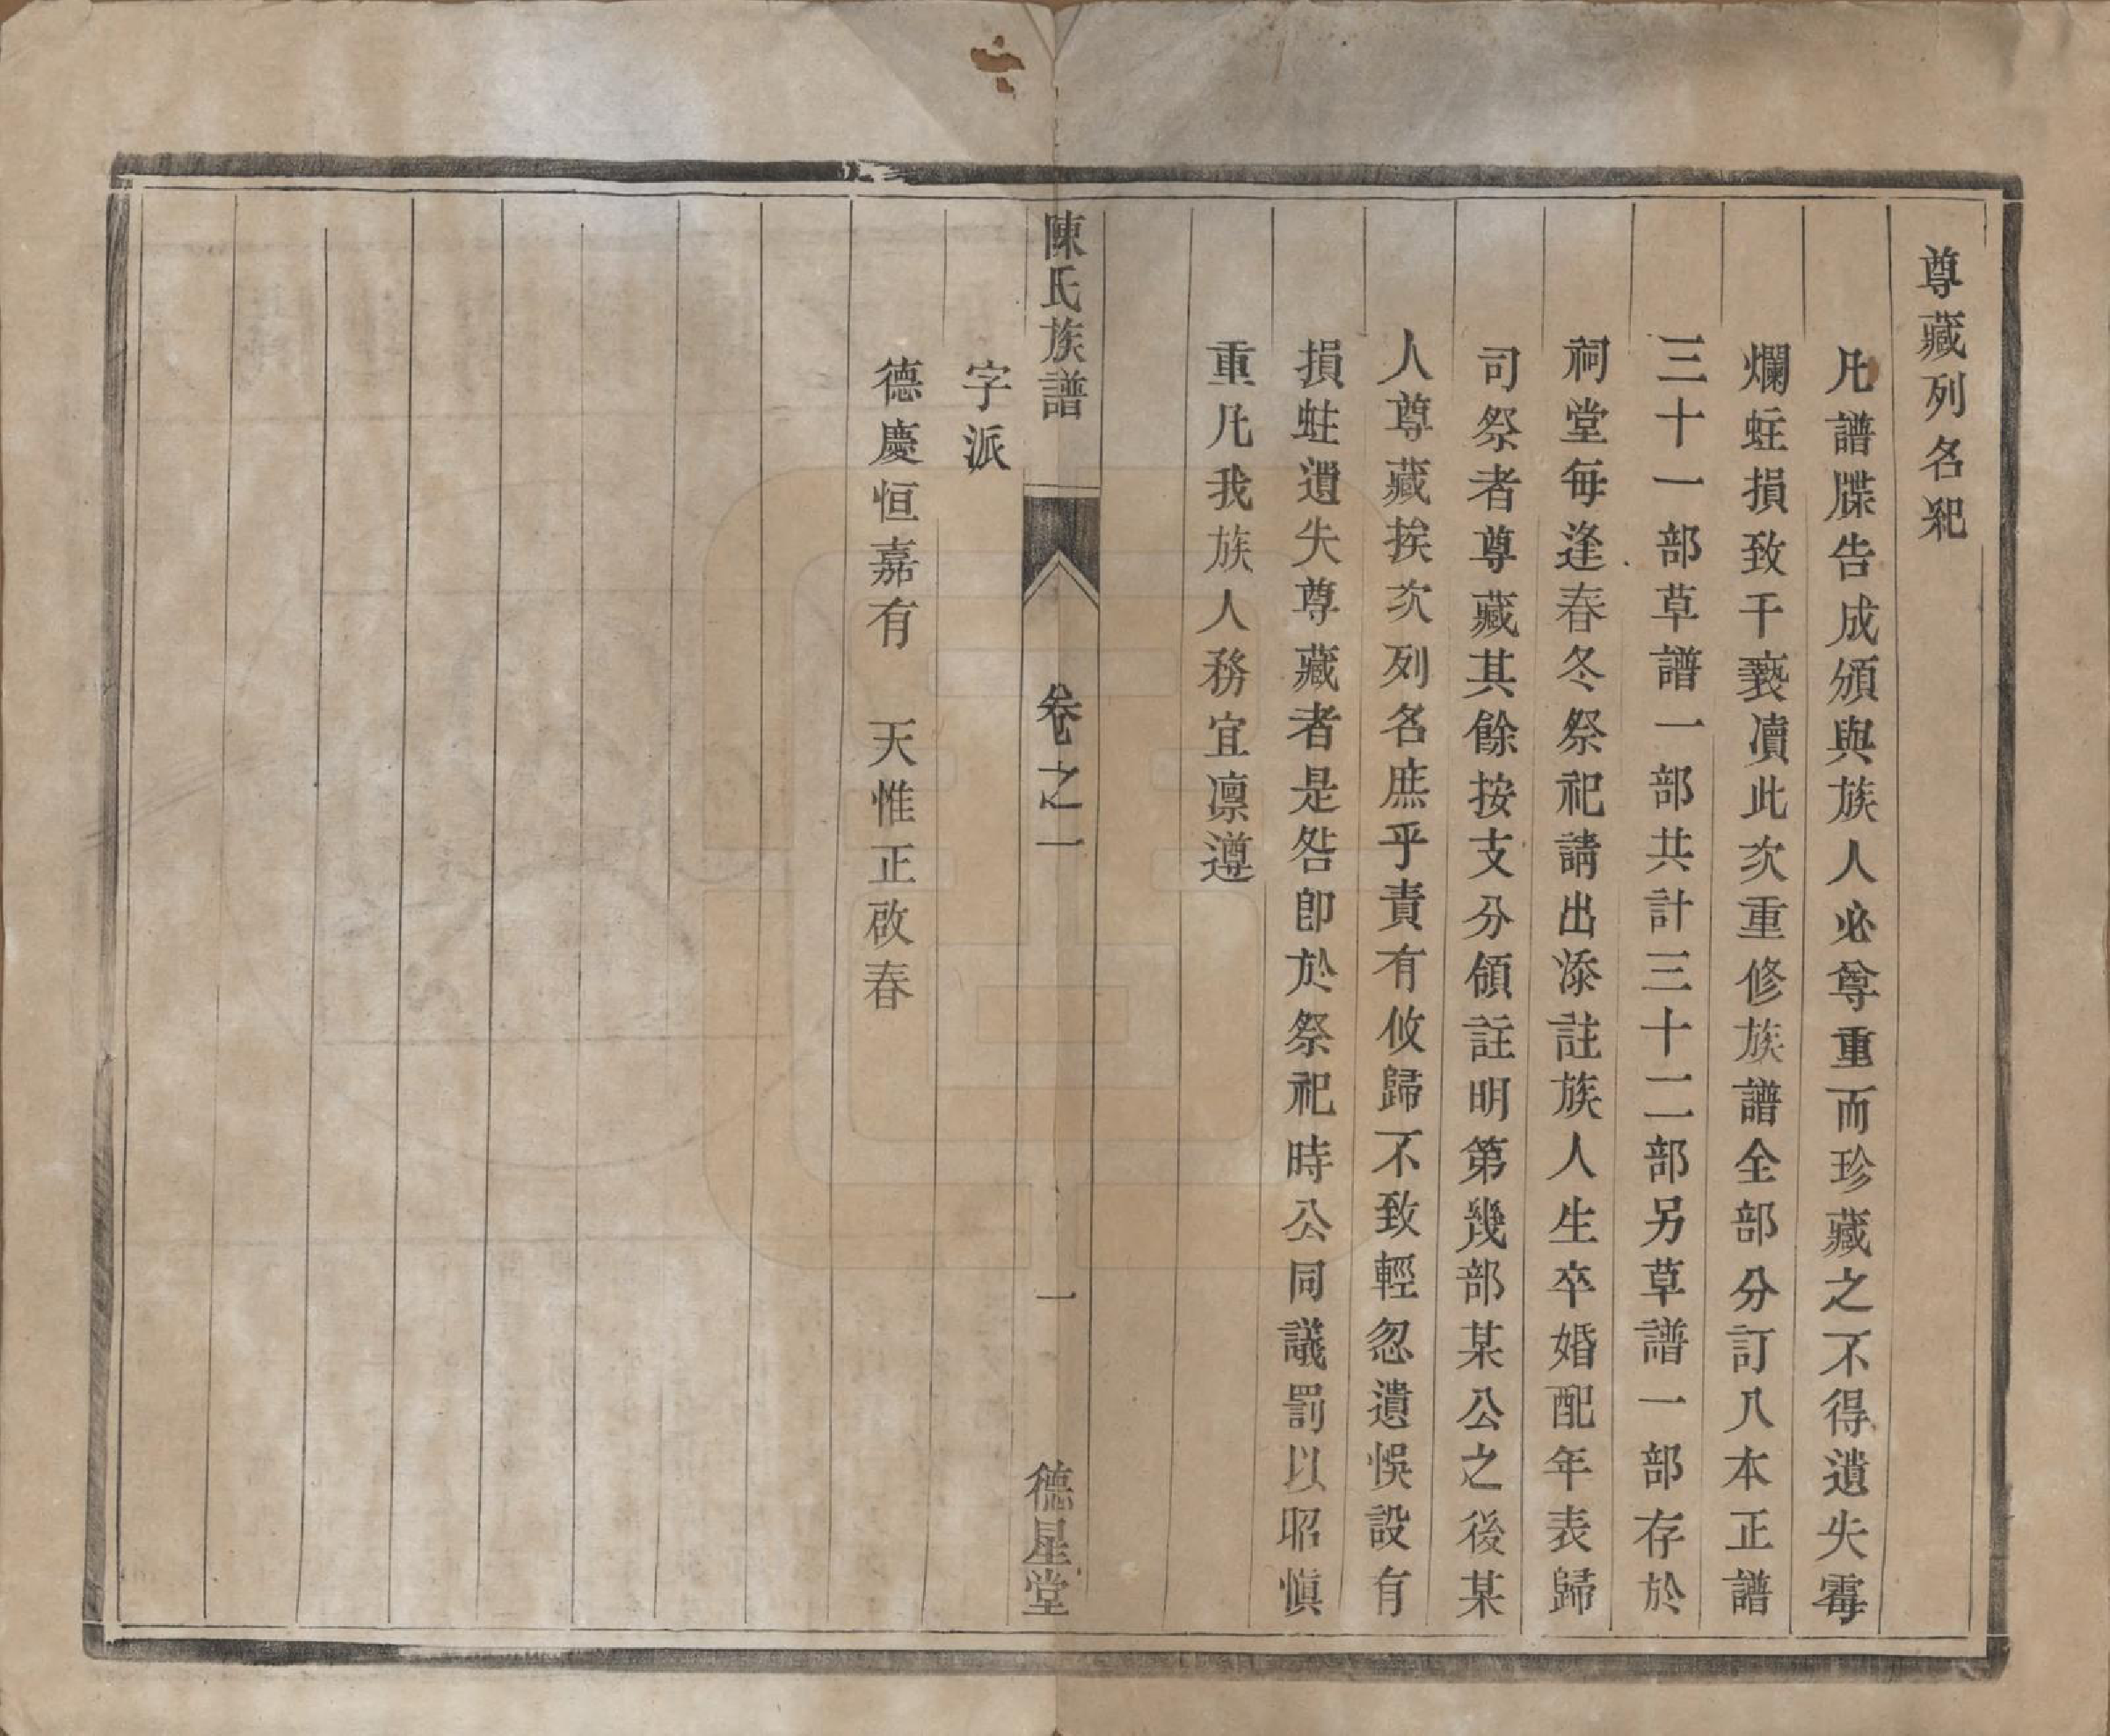 尊藏列名紀
凡譜牒告成頒與族人必尊重而珍藏之不得遺失霉
爛蛀損致干褻凟此次重修族譜全部分訂八本正譜
三十一部草譜一部共計三十二部另草譜一部存於
祠堂每逢春冬祭祀請出添註族人生卒婚配年表歸
司祭者尊藏其餘按支分領註明第幾部某公之後某
人尊藏挨次列名庶乎責有攸歸不致輕忽遺悞設有
損蛀遺失尊藏者是咎卽於祭祀時公同議罰以昭愼
重凡我族人務宜凛遵
陳氏族譜 卷之一 一 德星堂
字派
德慶恒嘉有 天惟正啟春